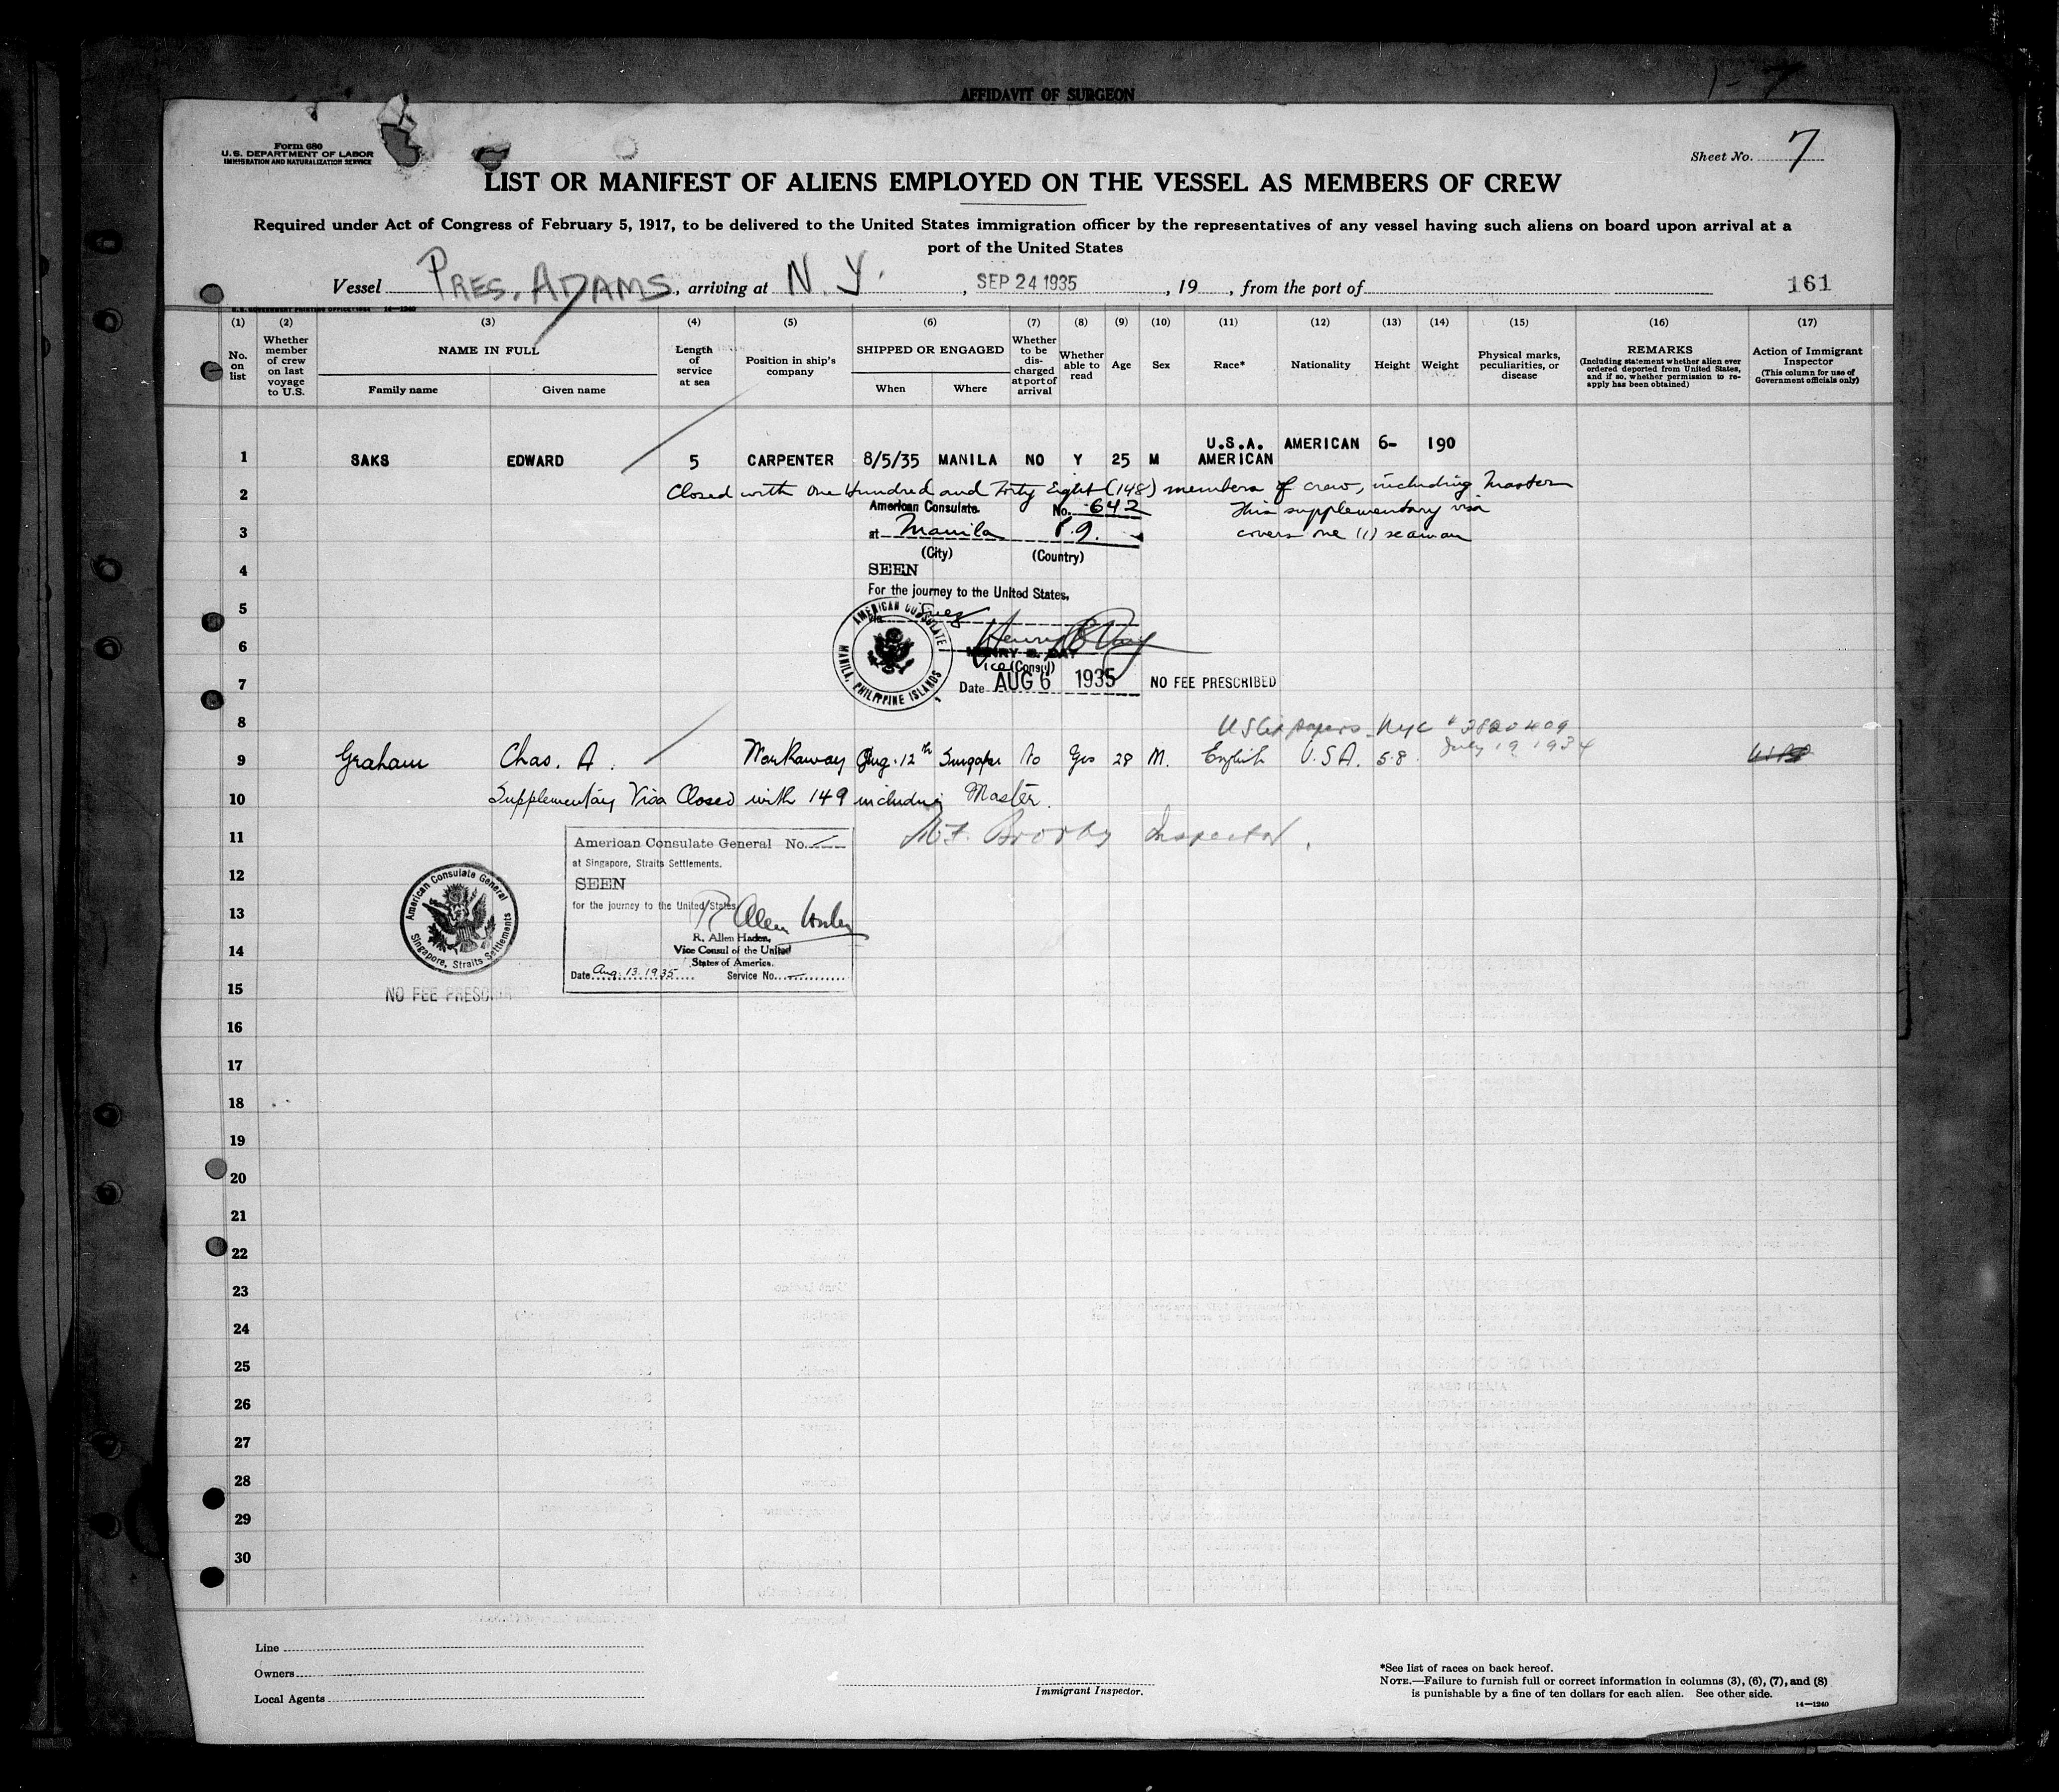 AFFIDAVIT OF SURGEON
Form 680
U.S. DEPARTMENT OF LABOR
IMMIGRATION AND NATURALIZATION SERVICE
Sheet No. 7
LIST OR MANIFEST OF ALIENS EMPLOYED ON THE VESSEL AS MEMBERS OF CREW
Required under Act of Congress of February 5, 1917, to be delivered to the United States immigration officer by the representatives of any vessel having such aliens on board upon arrival at a
port of the United States
Vessel PRES. ADAMS, arriving at N. Y., SEP 24 1935, 19 , from the port of 161
(1) (2) (3) (4) (5) (6) (7) (8) (9) (10) (11) (12) (13) (14) (15) (16) (17)
No. on list
Whether member of crew on last voyage to U.S.
NAME IN FULL
Family name Given name
Length of service at sea
Position in ship's company
SHIPPED OR ENGAGED
When Where
Whether to be discharged at port of arrival
Whether able to read
Age
Sex
Race*
Nationality
Height
Weight
Physical marks, peculiarities, or disease
REMARKS
(Including statement whether alien ever ordered deported from United States, and if so, whether permission to reapply has been obtained)
Action of Immigrant Inspector
(This column for use of Government officials only)
1 SAKS EDWARD 5 CARPENTER 8/5/35 MANILA NO Y 25 M U.S.A. AMERICAN AMERICAN 6- 190
2 Closed with One Hundred and Forty Eight (148) members of crew, including Master
American Consulate No. 642 This supplementary visa
3 at Manila P.I. covers one (1) seaman
(City) (Country)
4 SEEN
For the journey to the United States,
5 Suez
AMERICAN CONSULATE MANILA, PHILIPPINE ISLANDS
6 HENRY B. DAY
Vice (Consul)
7 Date AUG 6 1935 NO FEE PRESCRIBED
8 NYC # 2820409
July 19 1934
9 Graham Chas. A. Workaway Aug. 12th Singapore No Yes 28 M. English U.S.A. 5-8
10 Supplementary Visa Closed with 149 including Master.
11 Inspector.
American Consulate General No.
at Singapore, Straits Settlements.
12 SEEN
for the journey to the United States
13 R Allen Haden
R. Allen Haden,
14 Vice Consul of the United
States of America.
Date Aug. 13. 1935 Service No.
American Consulate General Singapore, Straits Settlements
15 NO FEE PRESCRIBED
16
17
18
19
20
21
22
23
24
25
26
27
28
29
30
Line
Owners
Local Agents
Immigrant Inspector.
*See list of races on back hereof.
NOTE.—Failure to furnish full or correct information in columns (3), (6), (7), and (8)
is punishable by a fine of ten dollars for each alien. See other side.
14—1240